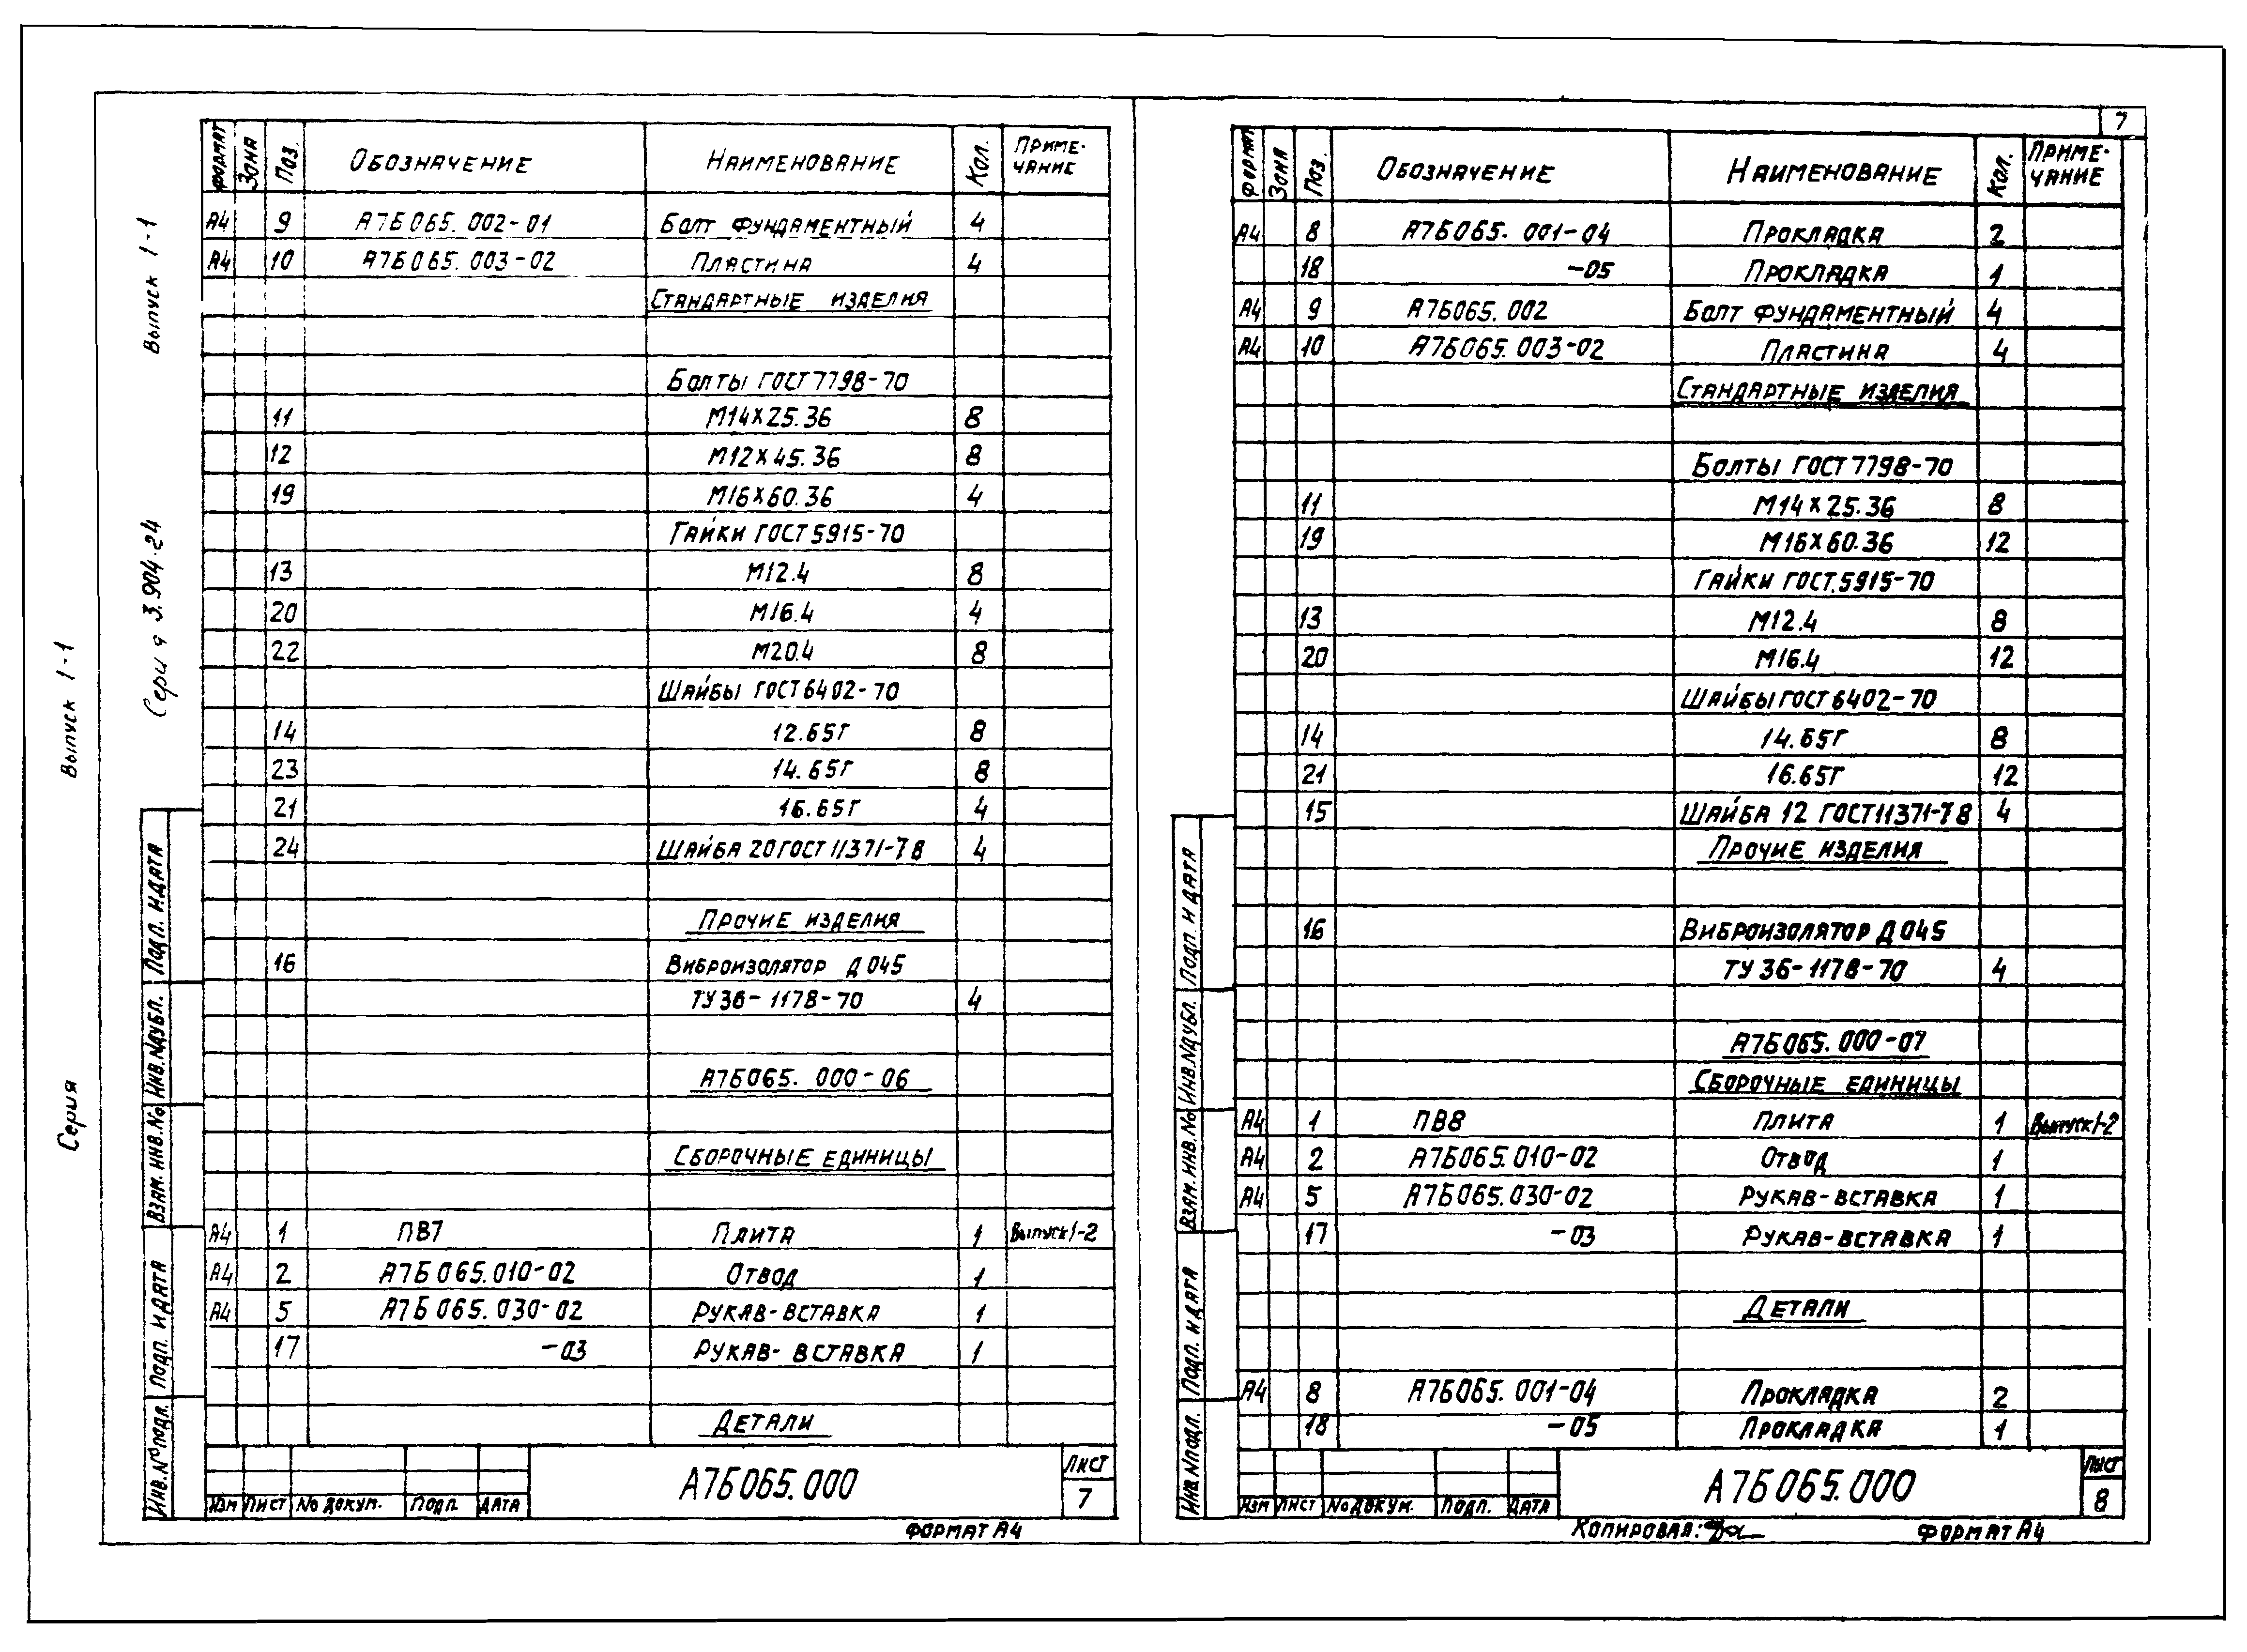 7
Серия Выпуск 1-1
Серия 3.904-24 Выпуск 1-1
Формат Зона Поз. Обозначение Наименование Кол. Приме-
чание
А4 9 А7Б065.002-01 Болт фундаментный 4
А4 10 А7Б065.003-02 Пластина 4
Стандартные изделия
Болты ГОСТ7798-70
11 М14х25.36 8
12 М12х45.36 8
19 М16х60.36 4
Гайки ГОСТ5915-70
13 М12.4 8
20 М16.4 4
22 М20.4 8
Шайбы ГОСТ6402-70
14 12.65Г 8
23 14.65Г 8
21 16.65Г 4
24 Шайба 20 ГОСТ11371-78 4
Прочие изделия
16 Виброизолятор Д045
ТУ36-1178-70 4
А7Б065.000-06
Сборочные единицы
А4 1 ПВ7 Плита 1 Выпуск1-2
А4 2 А7Б065.010-02 Отвод 1
А4 5 А7Б065.030-02 Рукав-вставка 1
17 -03 Рукав-вставка 1
Детали
Инв.№подл. Подп. и дата Взам.инв.№ Инв.№дубл. Подп. и дата
Изм Лист № докум. Подп. Дата
А7Б065.000
Лист
7
Формат А4
Формат Зона Поз. Обозначение Наименование Кол. Приме-
чание
А4 8 А7Б065.001-04 Прокладка 2
18 -05 Прокладка 1
А4 9 А7Б065.002 Болт фундаментный 4
А4 10 А7Б065.003-02 Пластина 4
Стандартные изделия
Болты ГОСТ7798-70
11 М14х25.36 8
19 М16х60.36 12
Гайки ГОСТ.5915-70
13 М12.4 8
20 М16.4 12
Шайбы ГОСТ6402-70
14 14.65Г 8
21 16.65Г 12
15 Шайба 12 ГОСТ11371-78 4
Прочие изделия
16 Виброизолятор Д045
ТУ36-1178-70 4
А7Б065.000-07
Сборочные единицы
А4 1 ПВ8 Плита 1 Выпуск1-2
А4 2 А7Б065.010-02 Отвод 1
А4 5 А7Б065.030-02 Рукав-вставка 1
17 -03 Рукав-вставка 1
Детали
А4 8 А7Б065.001-04 Прокладка 2
18 -05 Прокладка 1
Инв.№подл. Подп. и дата Взам.инв.№ Инв.№дубл. Подп. и дата
Изм Лист № докум. Подп. Дата
А7Б065.000
Лист
8
Копировал: Формат А4